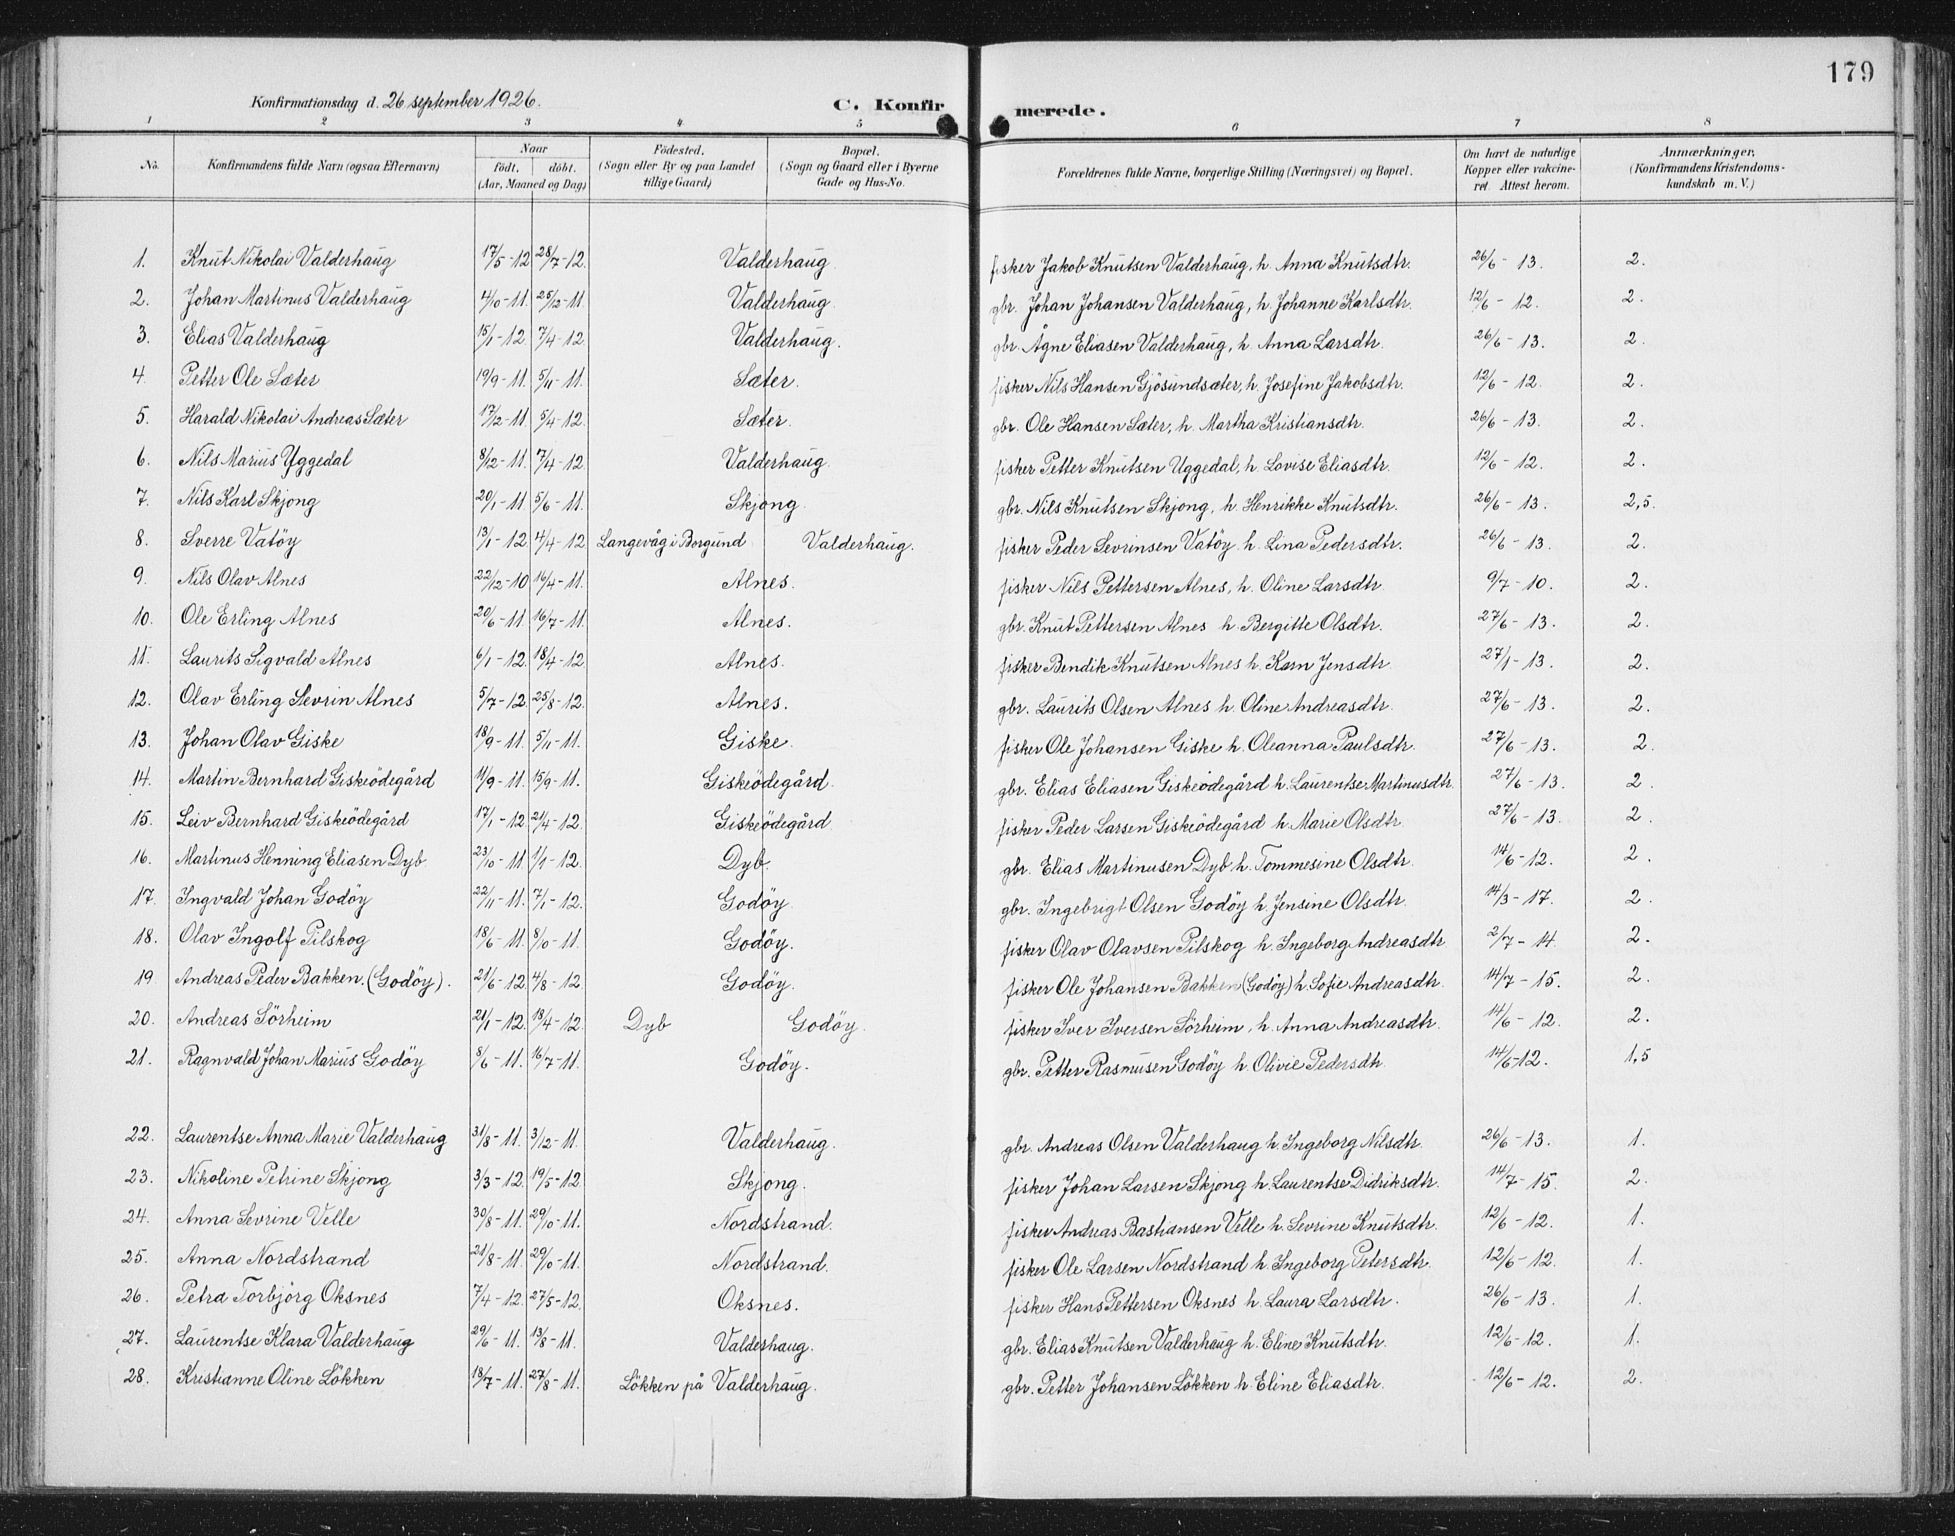 179
Konfirmationsdag d. 26 september 1926. C. Konfirmerede.
1 2 3 4 5 6 7 8
No. Konfirmandens fulde Navn (ogsaa Efternavn) Naar födt. döbt. (Aar, Maaned og Dag) Födested. (Sogn eller By og paa Landet tillige Gaard) Bopæl. (Sogn og Gaard eller i Byerne Gade og Hus-No. Forældrenes fulde Navne, borgerlige Stilling (Næringsvei) og Bopæl. Om havt de naturlige Kopper eller vakcineret. Attest herom. Anmærkninger, (Konfirmandens Kristendomskundskab m. V.)
1. Knut Nikolai Valderhaug 17/5-12 28/7-12. Valderhaug. fisker Jakob Knutsen Valderhaug, h. Anna Knutsdtr. 26/6-13. 2.
2. Johan Martinus Valderhaug 4/10-11. 25/12-11. Valderhaug. gbr. Johan Johansen Valderhaug, h. Johanne Karlsdtr. 12/6-12. 2.
3. Elias Valderhaug 15/1-12 7/4-12 Valderhaug. gbr. Ågne Eliasen Valderhaug, h. Anna Larsdtr. 26/6-13. 2.
4. Petter Ole Sæter 19/9-11. 5/11-11. Sæter. fisker Nils Hansen Gjösundsæter, h. Josefine Jakobsdtr. 12/6-12. 2.
5. Harald Nikolai Andreas Sæter 17/12-11. 5/4-12. Sæter. gbr. Ole Hansen Sæter, h. Martha Kristiansdtr. 26/6-13. 2.
6. Nils Marius Yggedal 8/12-11. 7/4-12 Valderhaug. fisker Petter Knutsen Uggedal, h. Lovise Eliasdtr. 12/6-12. 2.
7. Nils Karl Skjong 20/1-11. 5/6-11. Skjong. gbr. Nils Knutsen Skjong, h. Henrikke Knutsdtr. 26/6-13. 2,5.
8. Sverre Vatöy 13/1-12 4/4-12 Langevåg i Borgund Valderhaug. fisker Peder Sevrinsen Vatöy h. Lina Pedersdtr. 26/6-13. 2.
9. Nils Olav Alnes 22/12-10 16/4-11. Alnes. fisker Nils Pettersen Alnes, h. Oline Larsdtr 9/7-10. 2.
10. Ole Erling Alnes 20/6-11. 16/7-11. Alnes. gbr. Knut Pettersen Alnes h. Bergitte Olsdtr. 27/6-13. 2.
11. Laurits Sigvald Alnes 6/1-12. 18/4-12. Alnes. fisker Bendik Knutsen Alnes h. Karn Jensdtr. 27/1-13. 2.
12. Olav Erling Sevrin Alnes 5/7-12. 25/8-12. Alnes. gbr. Laurits Olsen Alnes h. Oline Andreasdtr. 27/6-13. 2.
13. Johan Olav Giske 18/9-11. 5/11-11. Giske. fisker Ole Johansen Giske h. Oleanna Paulsdtr. 27/6-13. 2.
14. Martin Bernhard Giskeödegård 11/9-11. 15/9-11. Giskeödegård. gbr. Elias Eliasen Giskeödegård h. Laurentse Martinusdtr. 27/6-13. 2.
15. Leiv Bernhard Giskeödegård 17/1-12. 21/4-12. Giskeödegård fisker Peder Larsen Giskeödegård h. Marie Olsdtr. 27/6-13. 2.
16. Martinus Henning Eliasen Dyb 23/10-11. 1/1-12. Dyb. gbr. Elias Martinusen Dyb h. Tommesine Olsdtr. 14/6-12. 2.
17. Ingvald Johan Godöy 22/11-11. 7/1-12. Godöy. gbr. Ingebrigt Olsen Godöy h. Jensine Olsdtr. 14/3-17. 2.
18. Olav Ingolf Pilskog 18/6-11. 8/10-11. Godöy. fisker Olav Olavsen Pilskog h. Ingeborg Andreasdtr 2/7-14. 2.
19 Andreas Peder Bakken. (Godöy). 21/6-12. 4/8-12 Godöy. fisker Ole Johansen Bakken (Godöy) h. Sofie Andreasdtr. 14/7-15. 2.
20. Andreas Sörheim 21/1-12. 18/4-12. Dyb Godöy. fisker Iver Iversen Sörheim, h. Anna Andreasdtr. 14/6-12. 2.
21. Ragnvald Johan Marius Godöy 8/6-11. 16/7-11. Godöy. gbr. Petter Rasmusen Godöy h. Olivie Pedersdtr. 14/6-12. 1,5
22. Laurentse Anna Marie Valderhaug 31/8-11. 3/12-11. Valderhaug. gbr. Andreas Olsen Valderhaug h. Ingeborg Nilsdtr. 26/6-13. 1.
23. Nikoline Petrine Skjong 3/3-12. 19/5-12 Skjong. fisker Johan Larsen Skjong h. Laurentse Didriksdtr. 14/7-15. 2.
24. Anna Sevrine Velle 30/8-11. 29/10-11. Nordstrand. fisker Andreas Bastiansen Velle h. Sevrine Knutsdtr. 12/6-12. 1.
25. Anna Nordstrand 21/8-11. 29/10-11. Nordstrand. fisker Ole Larsen Nordstrand h. Ingeborg Petersdtr. 12/6-12. 1.
26. Petra Torbjörg Oksnes 7/4-12. 27/5-12. Oksnes. fisker Hans Pettersen Oksnes h. Laura Larsdtr. 26/6-13. 1.
27. Laurentse Klara Valderhaug 29/6-11. 13/8-11. Valderhaug. gbr. Elias Knutsen Valderhaug h. Eline Knutsdtr. 12/6-12. 1.
28. Kristianne Oline Lökken 18/7-11. 27/8-11. Lökken på Valderhaug. gbr. Petter Johansen Lökken h. Eline Eliasdtr. 12/6-12. 2.